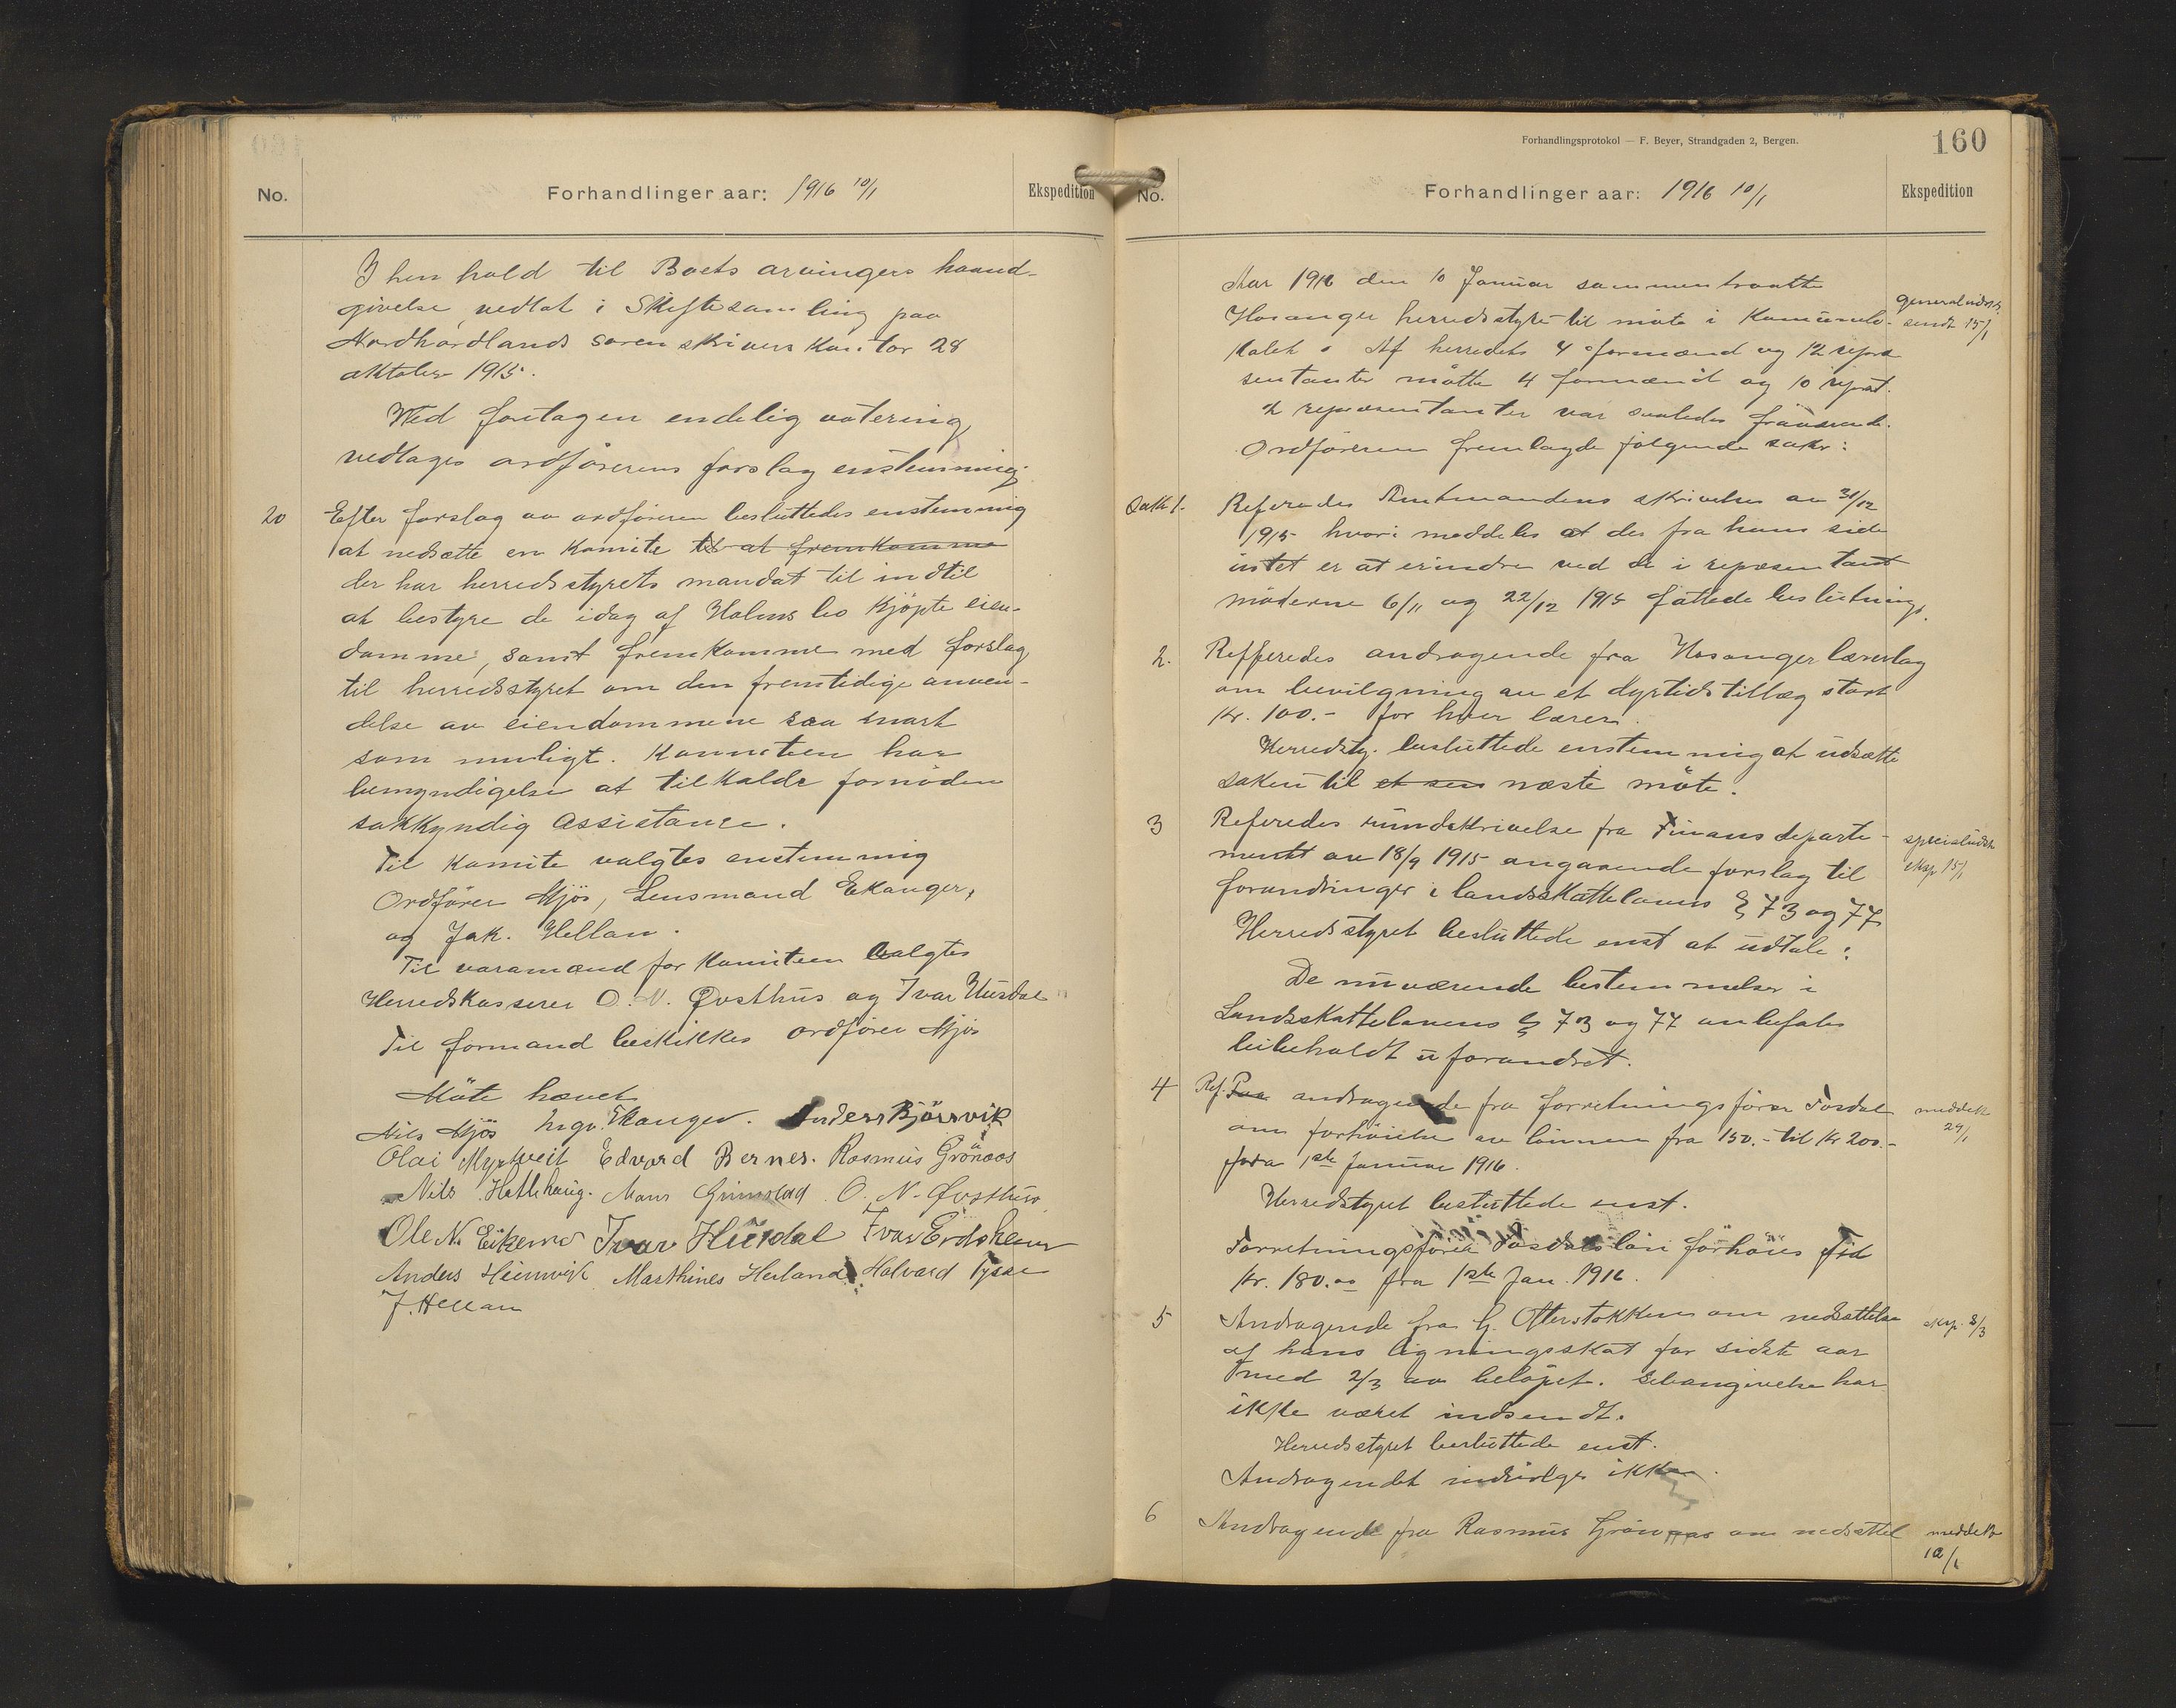 No.
Forhandlinger aar: 1916 10/1
Ekspedition
I henhold til Boets arvingers haand-
givelse, vedtat i Skiftesamling paa
Nordhordlands sorenskrivers kontor 28
oktober 1915.
Ved foretagen endelig votering
vedtages ordførerens forslag enstemmig.
20 Efter forslag av ordføreren besluttedes enstemmig
at nedsætte en komite til at fremkomme
der har herredsstyrets mandat til indtil
at bestyre de idag af Holms bo kjøpte eien-
domme, samt fremkomme med forslag
til herredsstyret om den fremtidige anven-
delse av eiendommene saa snart
som muligt. Komiteen har
bemyndigelse at tilkalde fornøden
sakkyndig assistance.
Til komite valgtes enstemmig
Ordfører Mjøs, Lensmand Ekanger,
og Jak. Hellan.
Til varamænd for komiteen valgtes
Herredskasserer O. N. Øvsthus og Ivar Husdal
Til formand beskikkes ordfører Mjøs
Møte hævet
Nils Mjös Ingv. Ekanger. Anders Bjørsvik
Olai Myrtveit Edvard Bernes. Rasmus Grönaas
Nils Hatlehaug. Mons Grimstad O. N. Øvsthus
Ole N. Eikemo Ivar Húsdal Ivar Eidsheim
Anders Heimvik Masthines Herland Halvard Tysse
J. Hellan
Forhandlingsprotokol — F. Beyer, Strandgaden 2, Bergen.
160
No.
Forhandlinger aar: 1916 10/1
Ekspedition
Aar 1916 den 10 Januar sammentraatte
Hosanger herredsstyre til møte i Komunelo-
kalet. Af herredets 4 formænd og 12 repræ
sentanter møtte 4 formænd og 10 repræst.
2 repræsentanter var saaledes fraværende.
Ordføreren fremlagde følgende saker:
generaludsk.
sendt 15/1
Sak 1. Referedes Amtmandens skrivelse av 31/12
1915 hvori meddeles at der fra hans side
intet er at erindre ved de i repræsentant
møderne 6/11 og 22/12 1915 fattede beslutning.
2. Refferedes andragende fra Hosanger lærerlag
om bevilgning av et dyrtidstillæg stort
Kr. 100.- for hver lærer.
Herredsty. besluttede enstemmig at udsætte
saken til et sen næste møte.
3 Referedes rundskrivelse fra Finansdeparte-
mentet av 18/9 1915 angaaende forslag til
forandringer i landsskattelovens § 73 og 77
Herredsstyret besluttede enst at udtale:
specialudsk
eksp 15/1
De nuværende bestemmelser i
Landsskattelovens § 73 og 77 anbefales
bibeholdt uforandret.
4 Ref. Paa andragende fra forretningsfører Fosdal
om forhøielse av lønnen fra 150.- til Kr 200.-
fora 1ste Januar 1916.
meddelt
29/1
Herredstyret besluttede enst.
Forretningsfører Fosdals løn förhöies tid
Kr. 180.00 fra 1ste Jan. 1916.
5 Andragende fra G. Ofterstokken om nedsættelse
af hans ligningsskat for sidste aar
med 2/3 av beløpet. Selvangivelse har
ikke været indsendt.
eksp. 8/3
Herredsstyret besluttede enst.
Andragendet indvilges ikke.
6 Andragende fra Rasmus Grønaas om nedsættel
meddelt